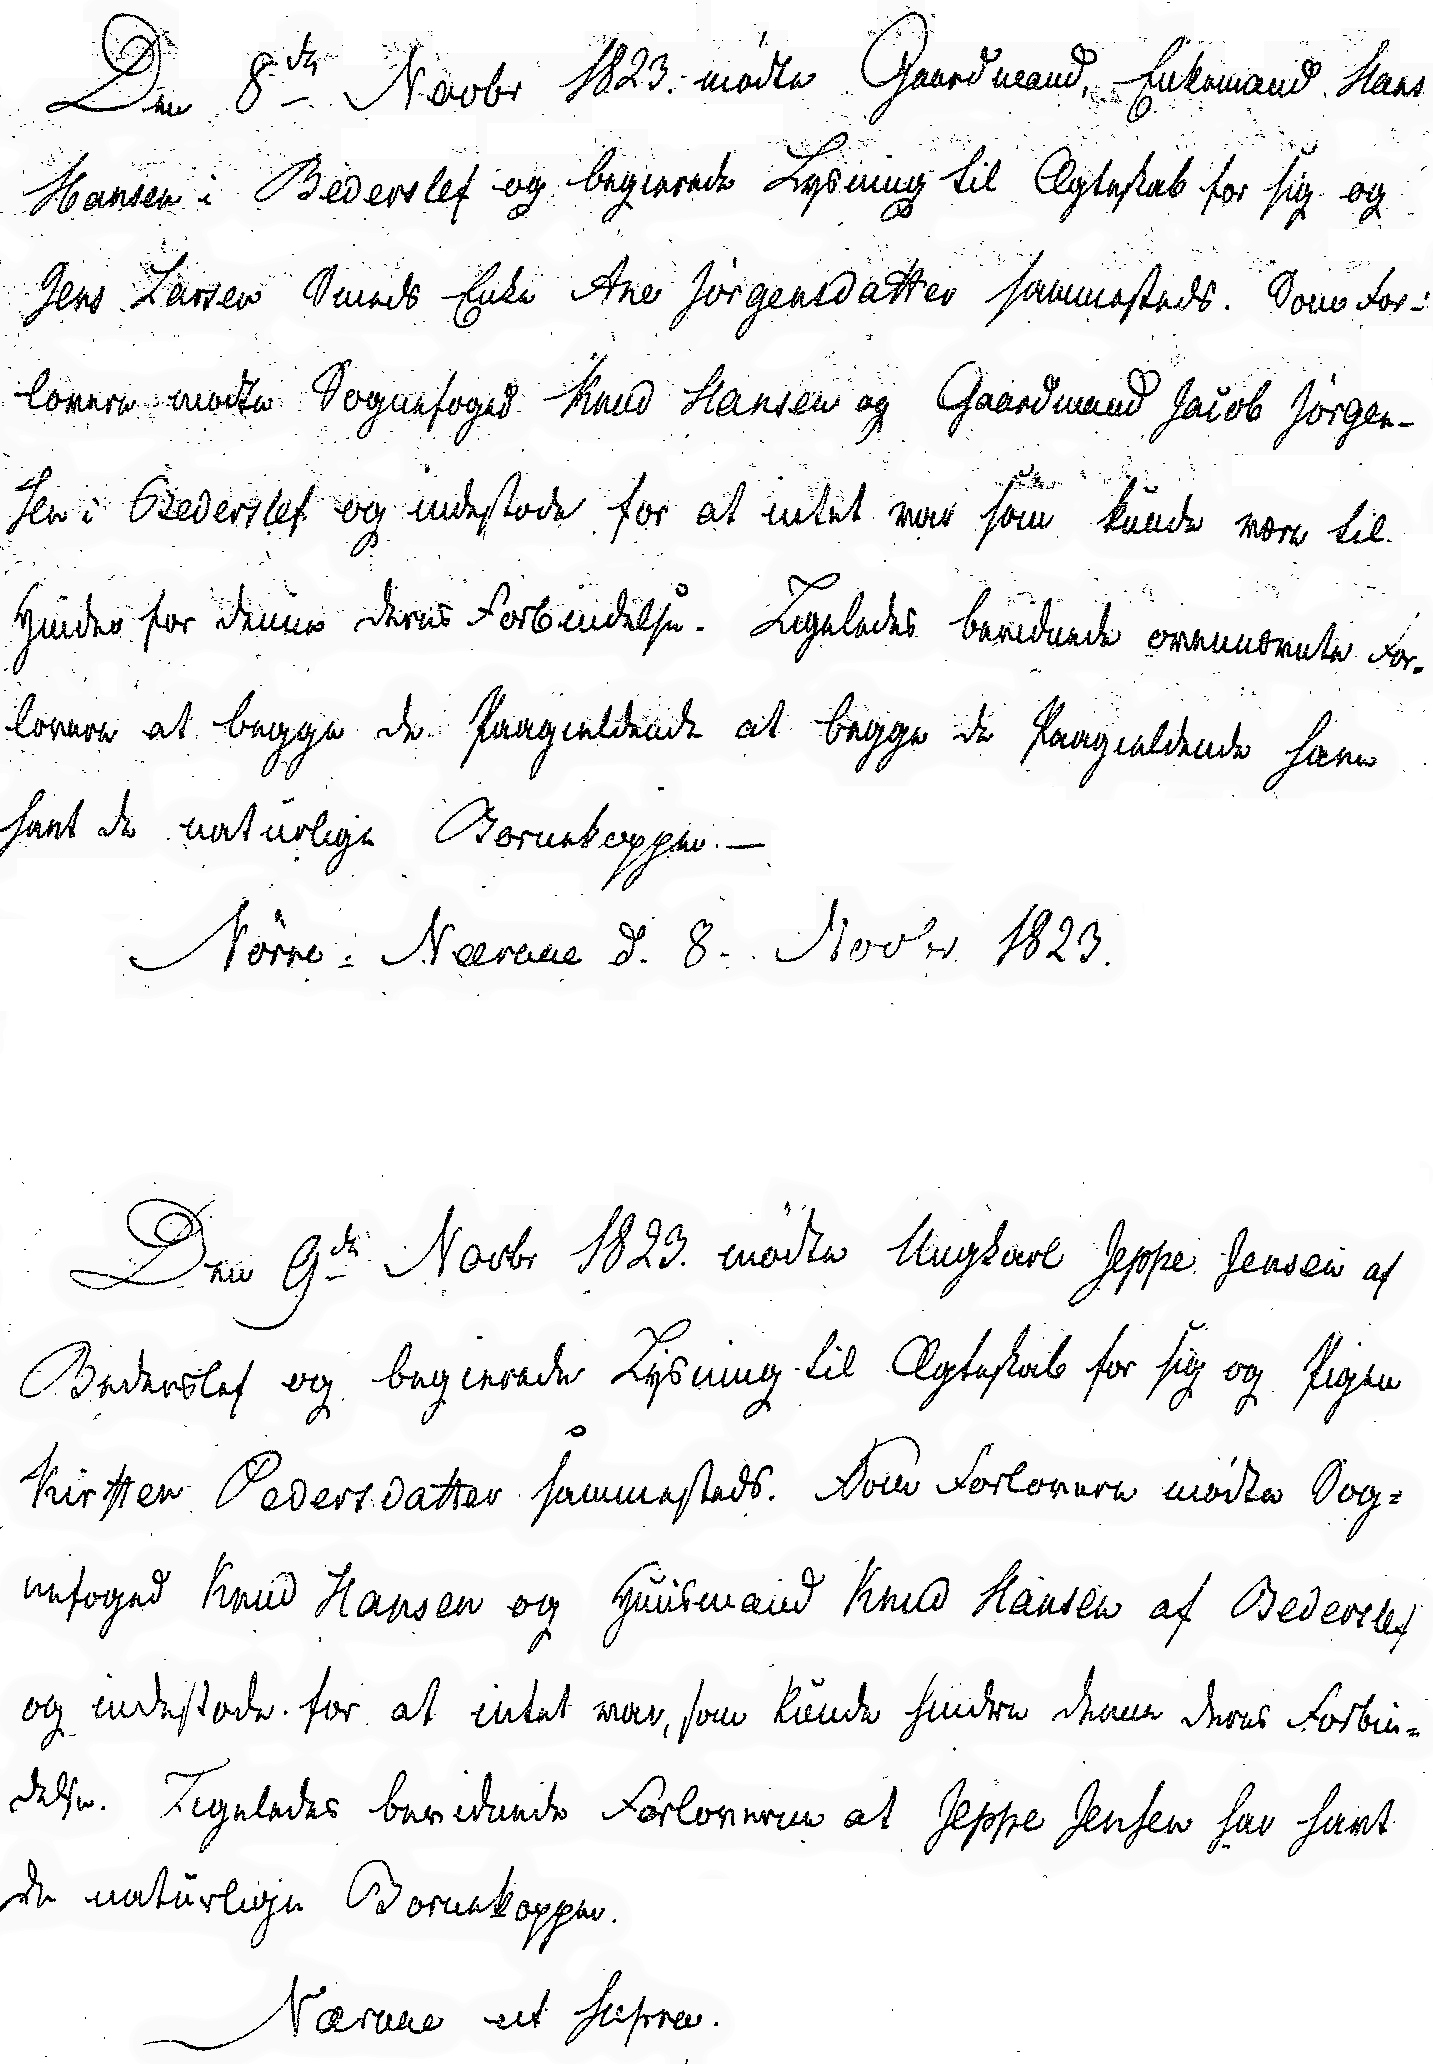 Den 8de Novbr 1823. mødte Gaardmand, Enkemand Hans
Hansen i Bederslef og begierede Lysning til Ægteskab for sig og
Jens Larsen Smeds Enke Ane Jörgensdatter sammesteds. Som For-
lovere mødte Sognefoged Knud Hansen og Gaardmand Jacob Jörgen-
sen i Bederslef og indestode for at intet var som kunde være til
Hinder for denne deres Forbindelse. Ligeledes bevidnede ovennævnte For-
lovere at begge de Paagieldende at begge de Paagieldende have
havt de naturlige Børnekopper. —
Nörre-Nærae d. 8. Novbr 1823.
Den 9de Novbr 1823. mödte Ungkarl Jeppe Jensen af
Bederslef og begierede Lysning til Ægteskab for sig og Pigen
Kirsten Pedersdatter sammesteds. Som Forlovere mødte Sog=
nefoged Knud Hansen og Huusmand Knud Hansen af Bederslef
og indestode for at intet var, som kunde hindre denne deres Forbin=
delse. Ligeledes bevidnede Forloverne at Jeppe Jensen har havt
de naturlige Børnekopper.
Nærae ut supra.